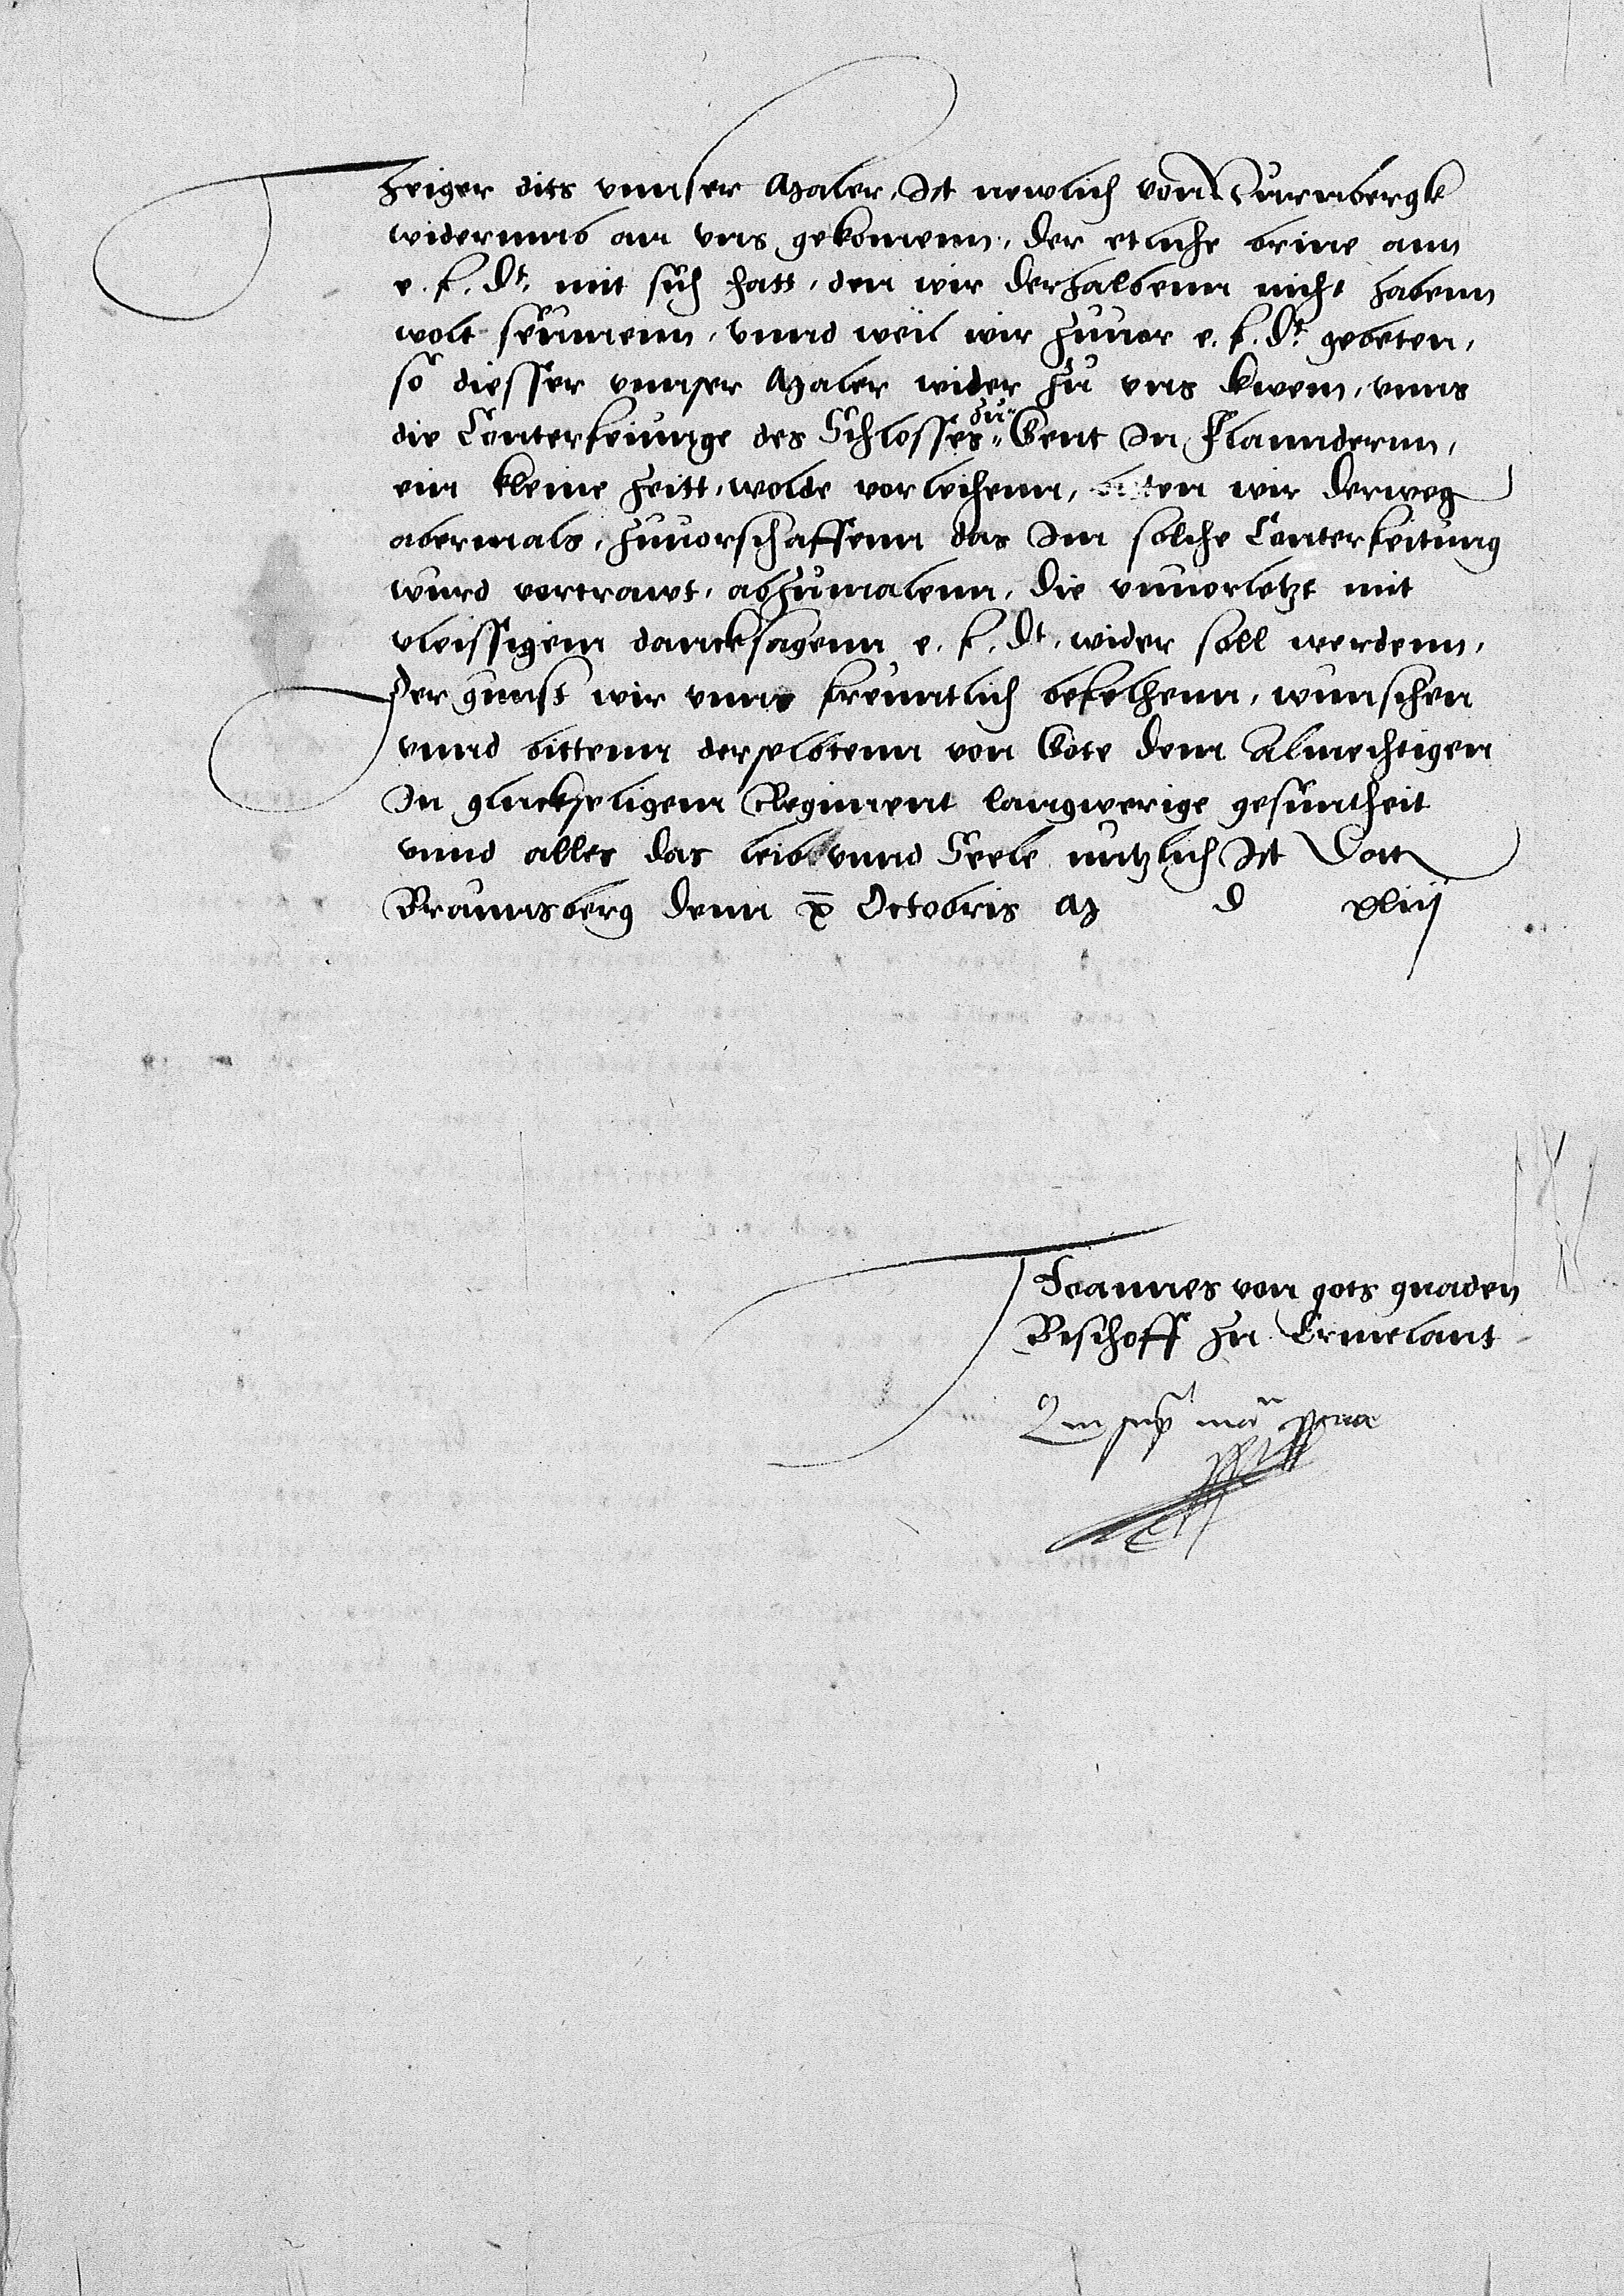 Zeiger dits vnnser Maler, Ist newlich von Nurnbergk
widerumb an vns gekomenn, der etliche brive ann
e. f. Dt. mit sich hatt, den wir derhalbenn nicht habenn
wolt seumenn, vnnd weil wir zuuor e. f. Dt. gebeten,
so diesser vnnser Maler wider zu vns kwem, vnns
die Conterfeiunge des Schlosses zu Gent In Flanndernn,
ein kleine zeitt, wolde vorleihenn, bitten wir derweg
abermals, zuuorschaffenn das Im solche Conterfeitung
wurd vertrawt, abzumalenn, die vnuorletzt mit
vleissigem dancksagenn e. f. Dt. wider soll werdenn,
Der gunst wir vnns freuntlich befelhenn, wunschen
vnnd bittenn derselbtenn von Gote dem Almechtigen
In gluckseligem Regiment langwerige gesuntheit
vnnd alles das leib vnnd Seele nutzlich Ist Datt
Braunsberg denn x Octobris M D xliij
Joannes von gots gnaden
Bischoff zu Ermelant